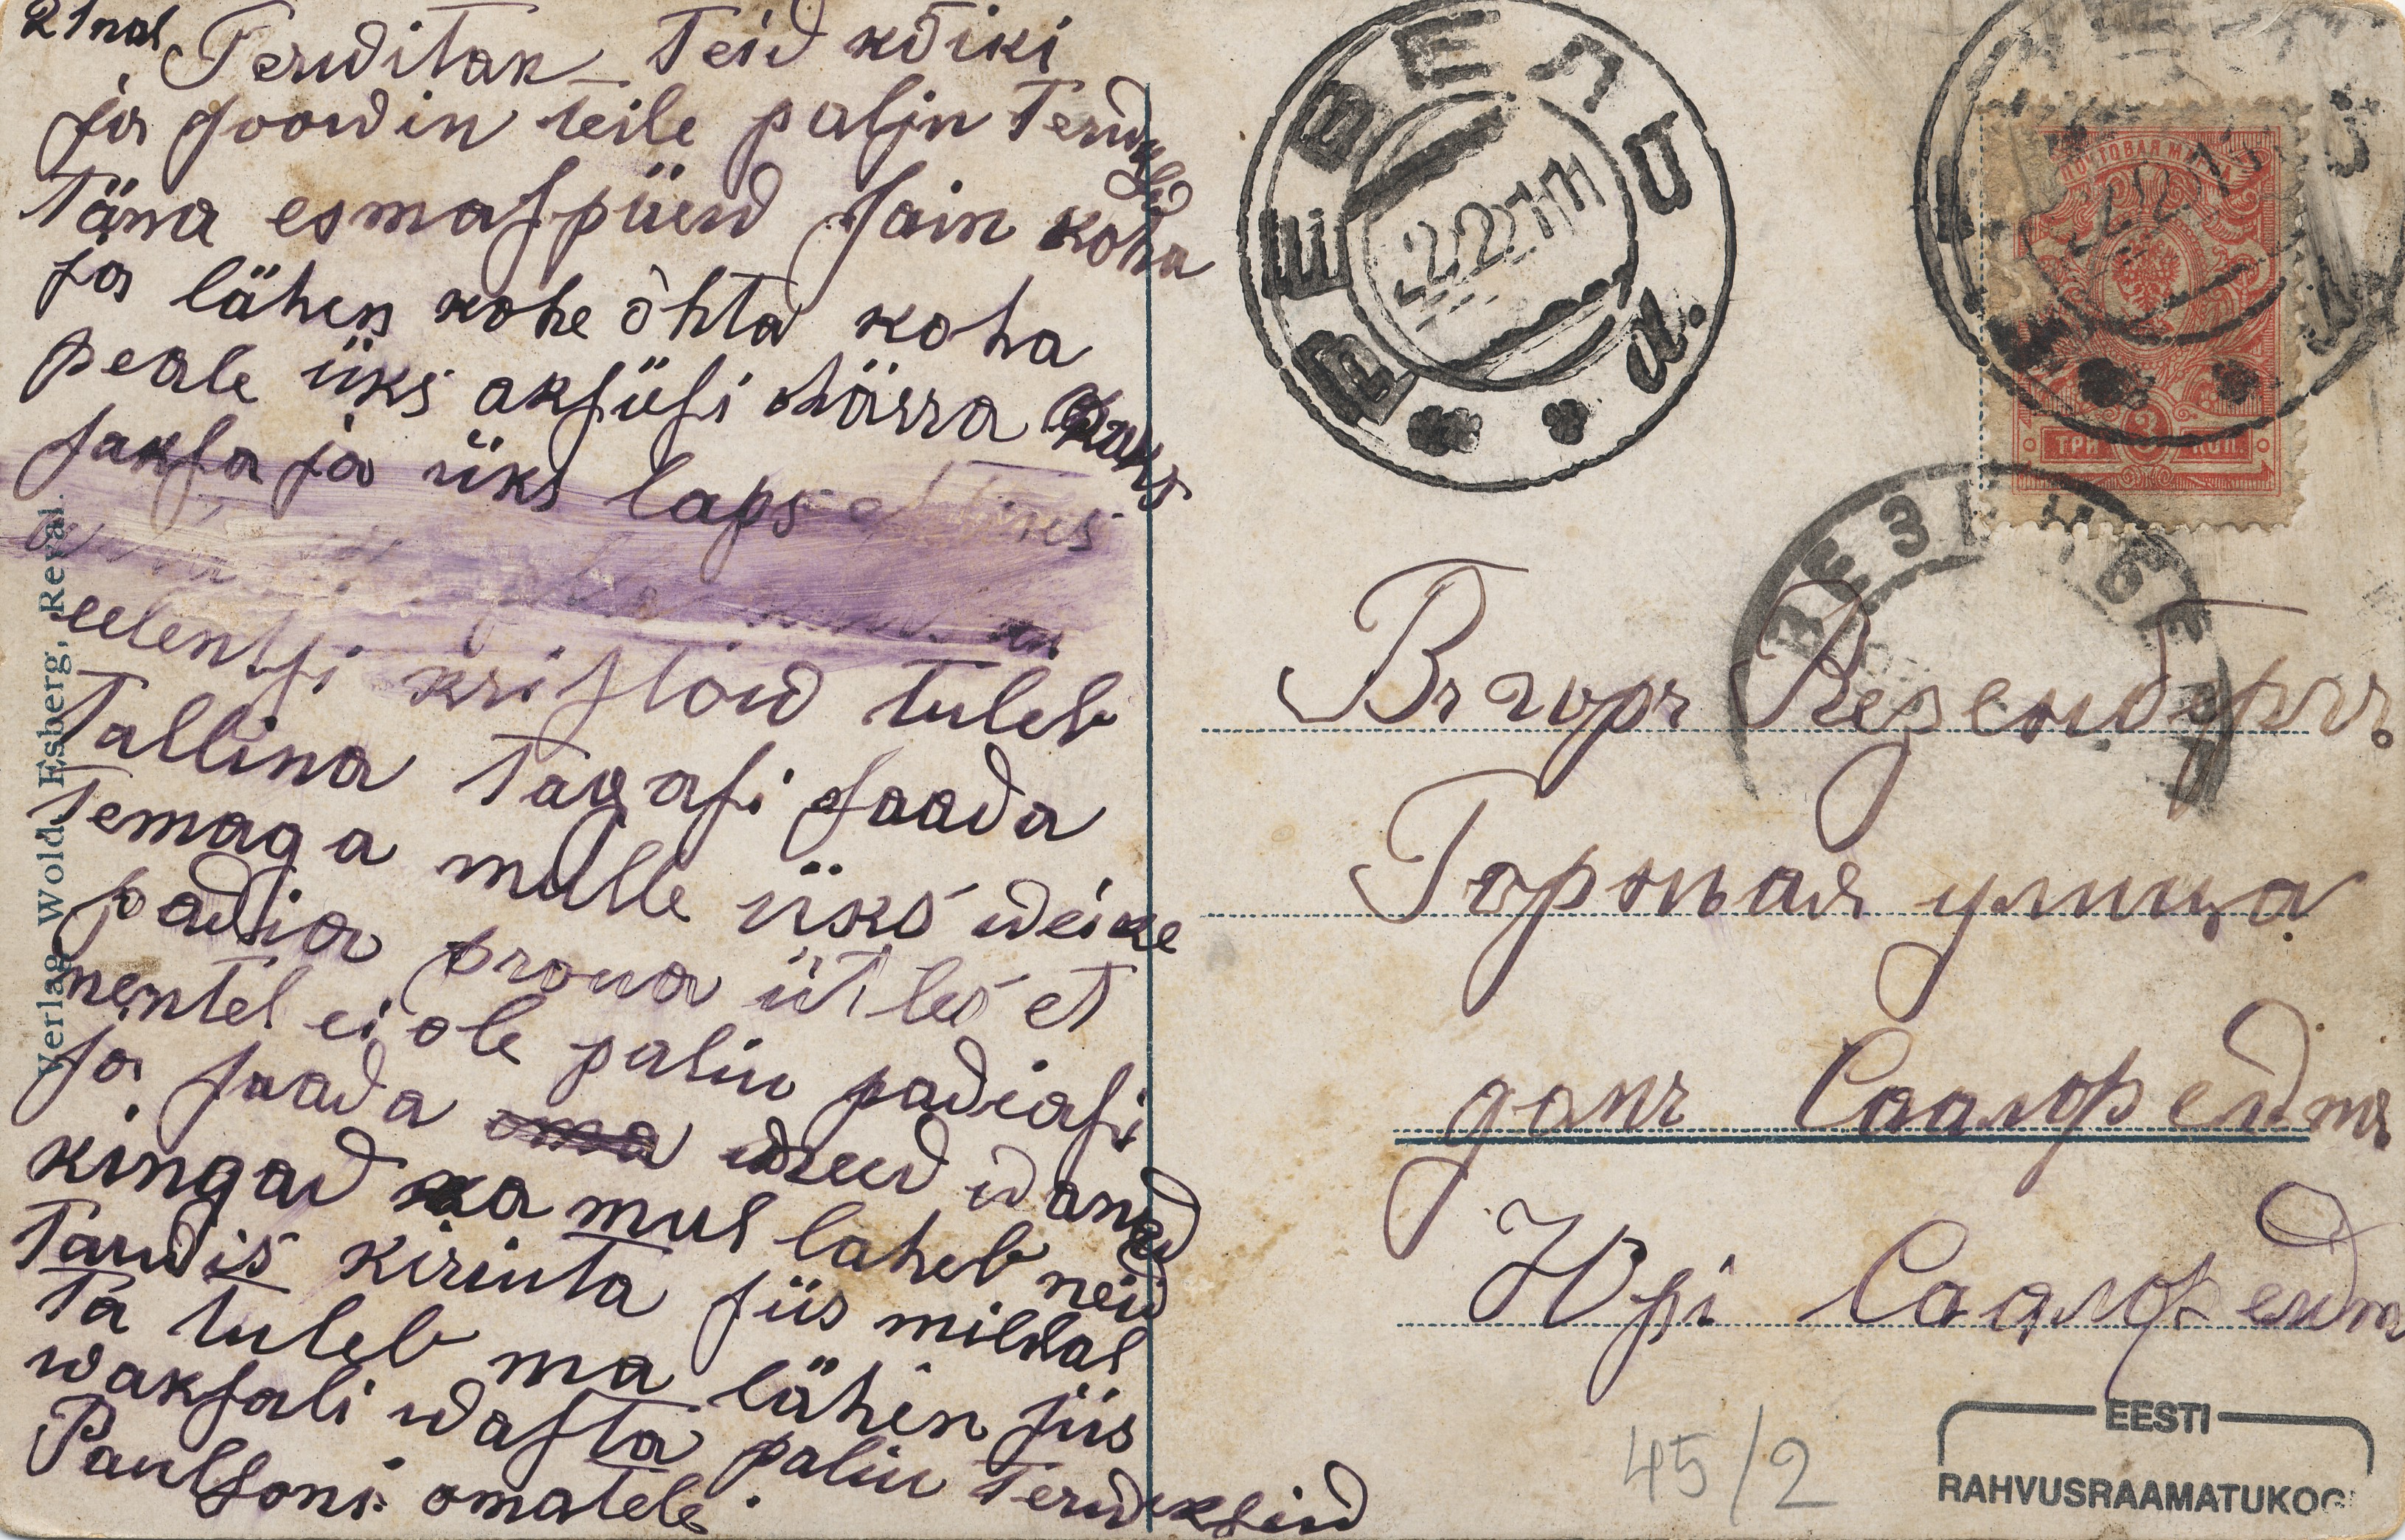 21nal
Terwitan Teid kõiki
ja soowin teile palju Terwisid
Täna esmaspäew sain koha
ja lähen kohe õhta koha
peale üks aksüüsi härra
saksa ja üks laps
tuleb
Tallina Tagasi saada
Temaga mulle üks weike
padia proua ütles et
nentel ei ole paliu padiasi
ja saada uued wanad
kingad ka mul laheb neid
Tarwis kirinta siis millal
Ta tuleb ma lähen siis
waksali wasta paliu Terweksid
Paulsoni omatele.
Verlag Wold. Esberg, Reval.
РЕВЕЛЬ
22 2 11
ПОЧТОВАЯ МАРКА
3
ТРИ КОП.
ВЕЗЕНБЕРГ
Въ горъ Везенбергъ.
Горная улица
домъ Саалфелдтъ
Юрі Саалфелдт
45/2
EESTI
RAHVUSRAAMATUKOGU